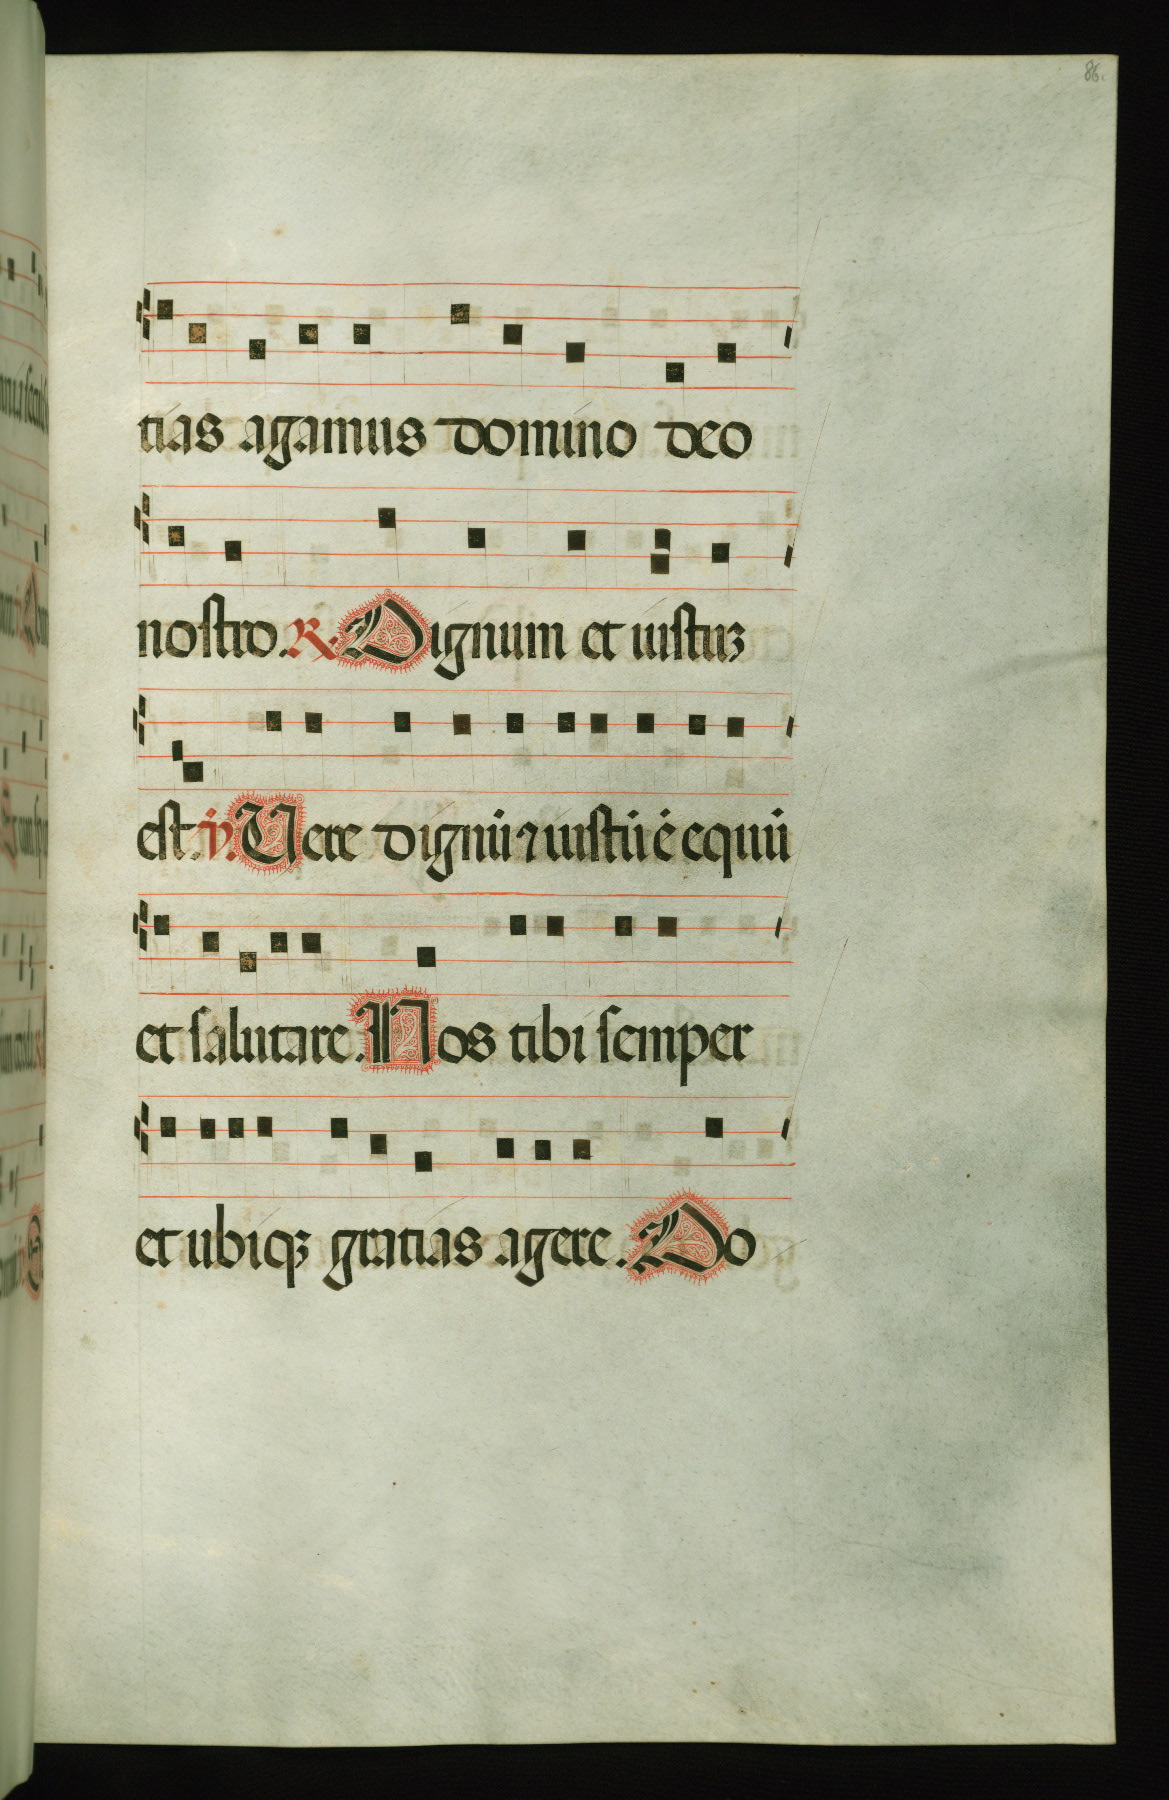 86.
tias agamus domino deo
nostro. ℟. Dignum et iustuꝫ
est. ℣. Vere dignū ⁊ iustū ē equū
et salutare. Nos tibi semper
et ubiqꝫ gratias agere. Do